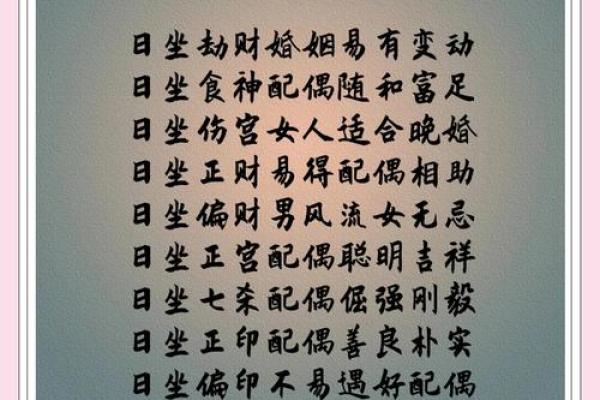 日坐劫财婚姻易有变动
日坐食神配偶随和富足
日坐伤宫女人适合晚婚
日坐正财易得配偶相助
日坐偏财男风流女无忌
日坐正宫配偶聪明吉祥
日坐七杀配偶倔强刚毅
日坐正印配偶善良朴实
日坐偏印不易遇好配偶